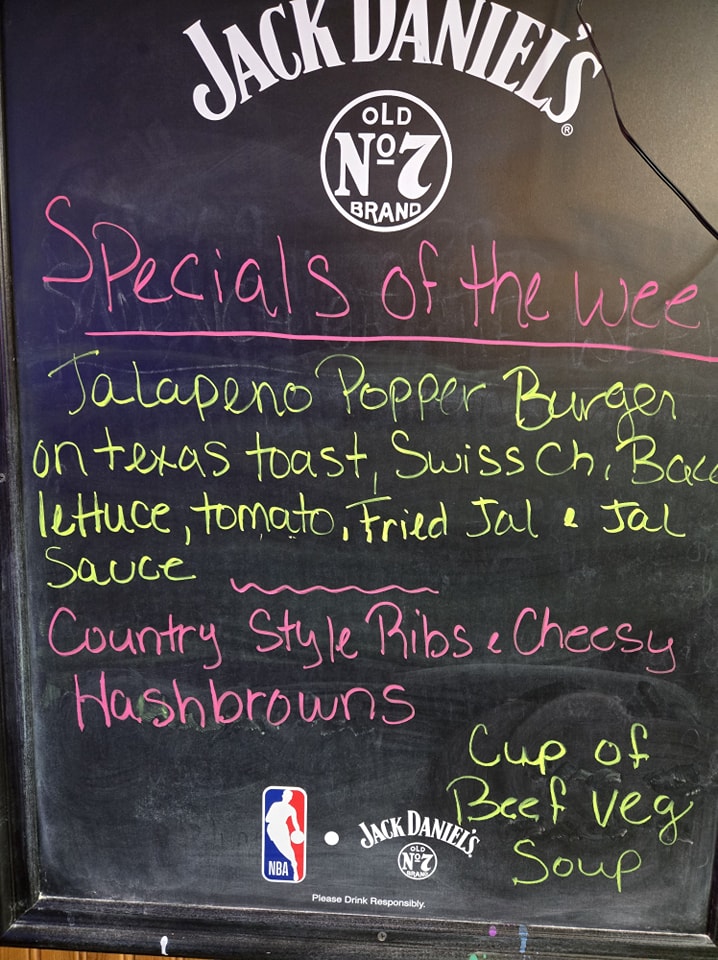 JACK DANIEL'S
OLD
Nº7
BRAND
®
Specials of the wee
Jalapeno Popper Burger
on texas toast, Swiss Ch, Bac
lettuce, tomato, Fried Jal & Jal
Sauce
Country Style Ribs & Cheesy
Hashbrowns
Cup of
Beef veg
Soup
NBA
JACK DANIEL'S
OLD
Nº7
BRAND
Please Drink Responsibly.